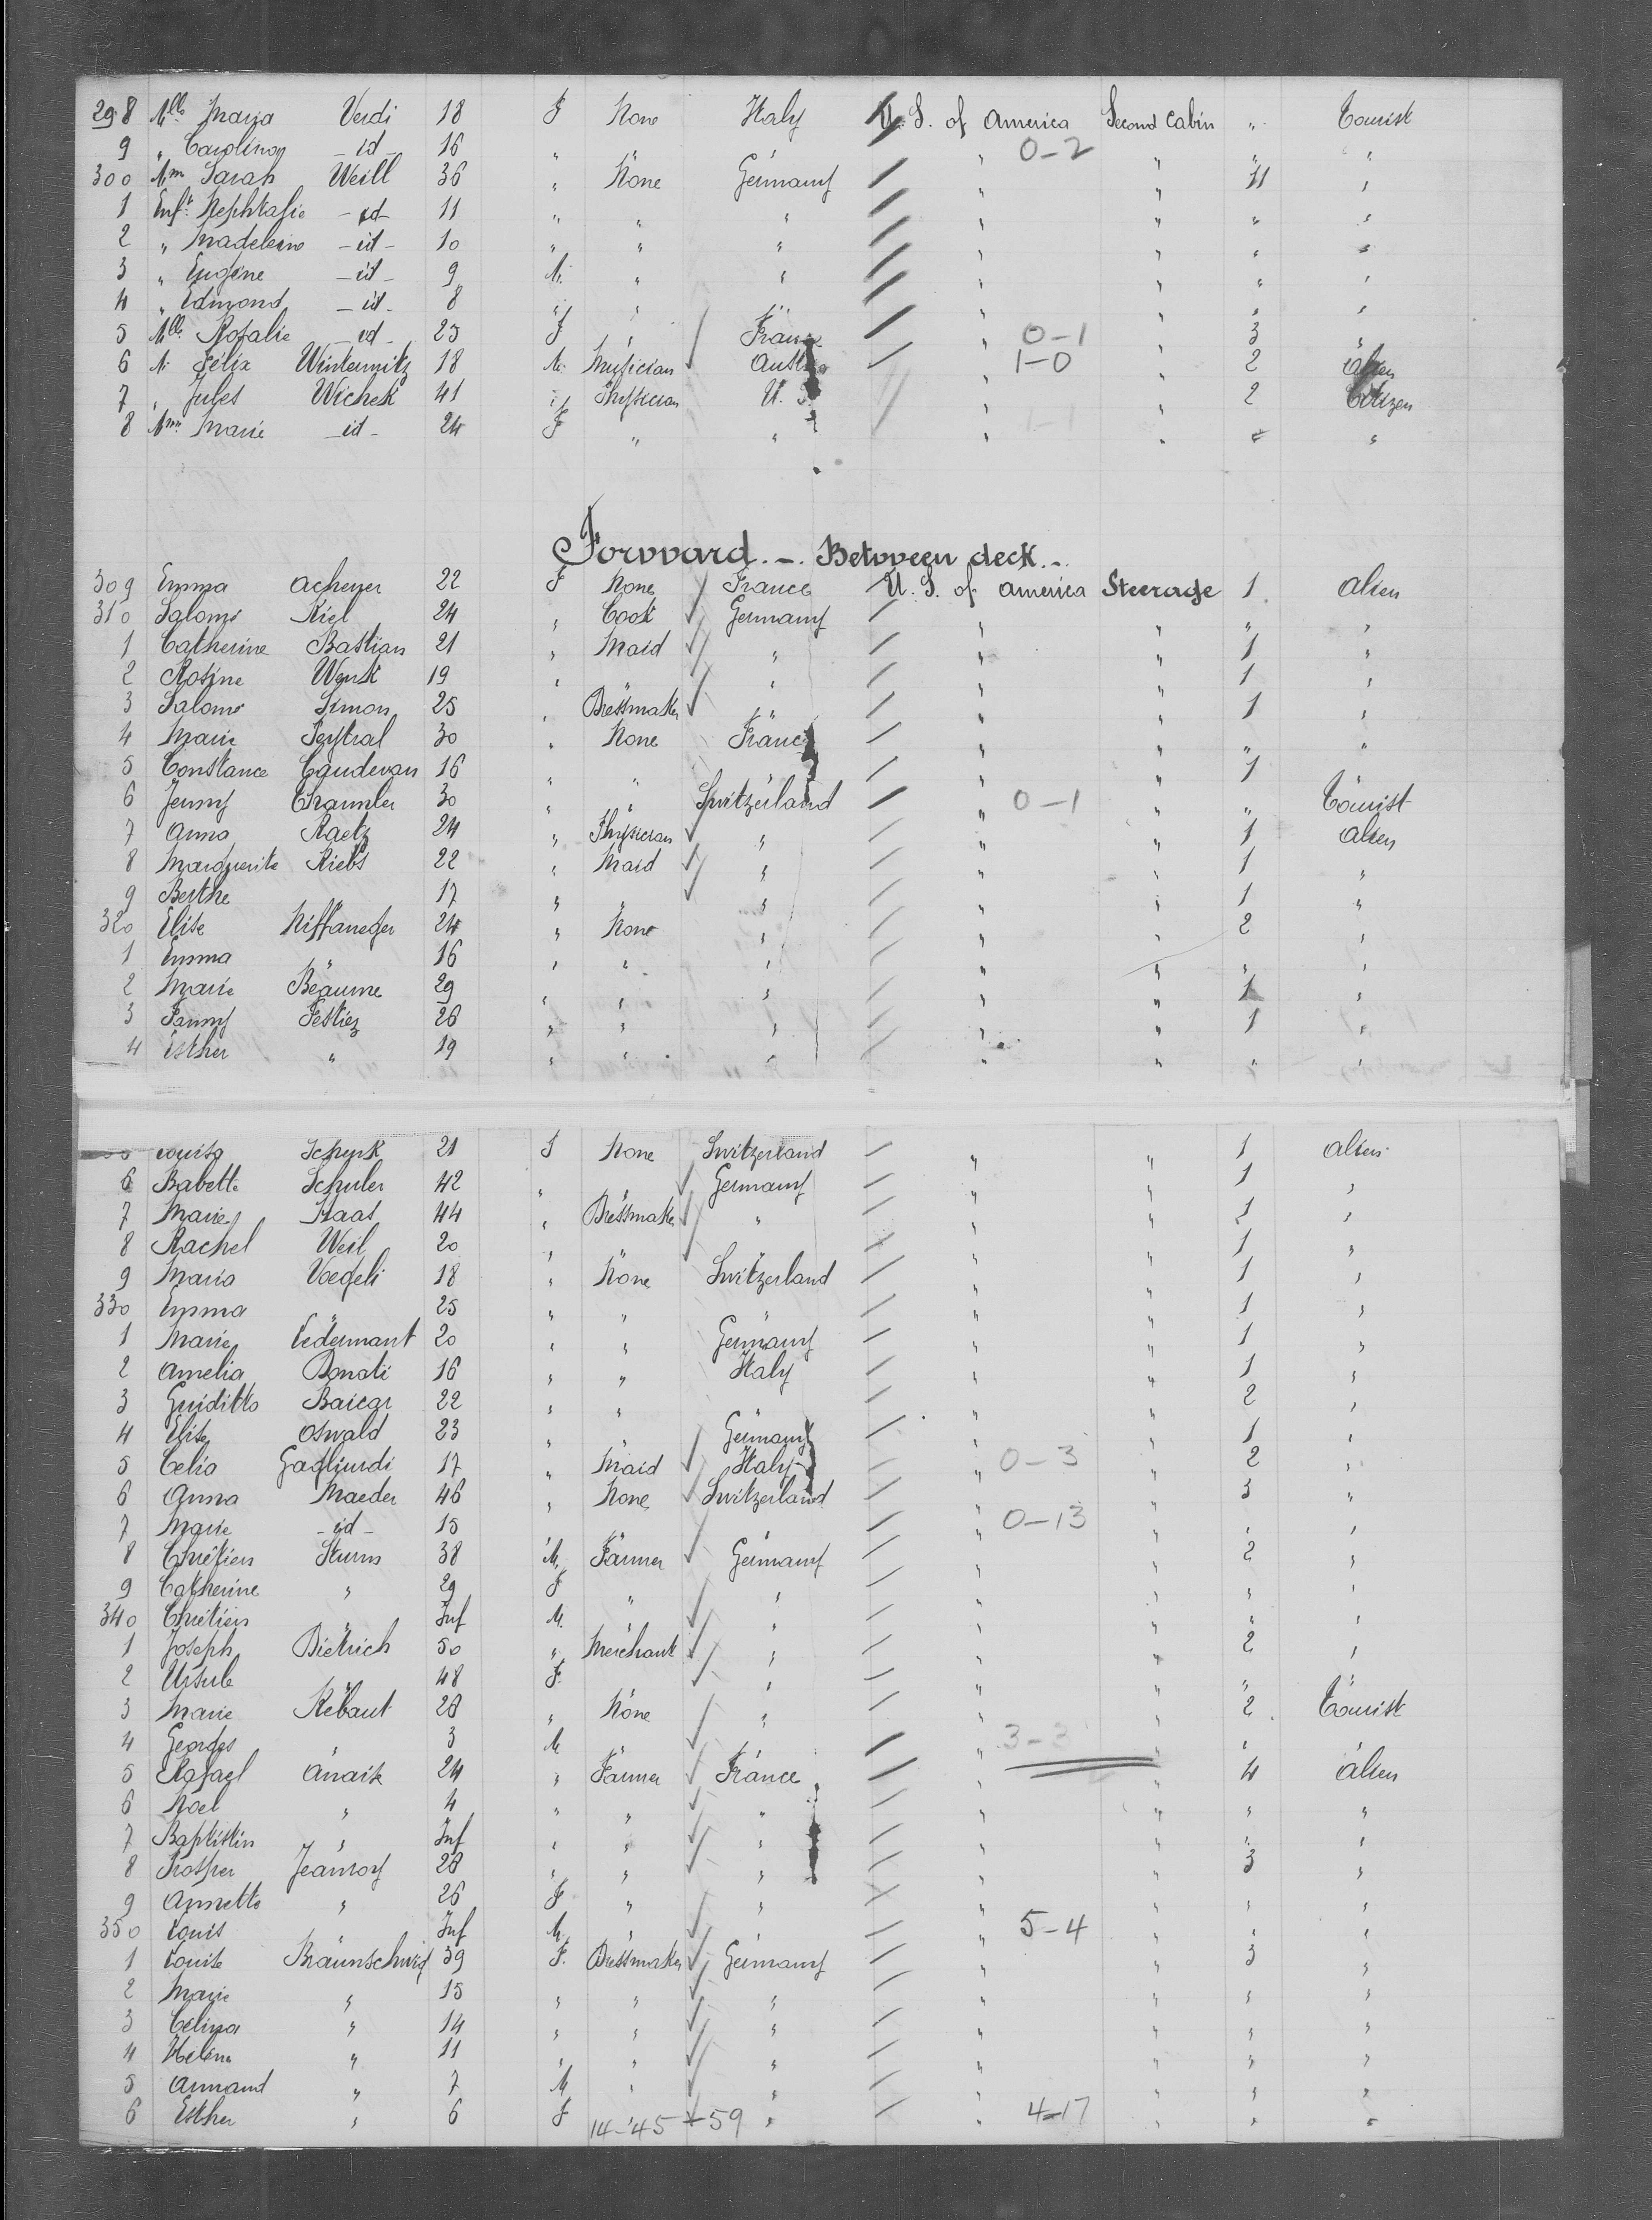 298 Mlle Maria Verdi 18 F None Italy U. S. of America Second Cabin " Tourist
9 " Carolina -id- 16 " " " 0-2 " " "
300 Mme Sarah Weill 36 " None Germany " " 4 "
1 Enft. Nephtalie -id- 11 " " " " " " "
2 " Madeleine -id- 10 " " " " " " "
3 " Eugène -id- 9 M. " " " " " "
4 " Edmond -id- 8 " " " " " " "
5 Mlle Rosalie -id- 25 F " France " 0-1 " 3 "
6 M. Félix Winternitz 18 M. Musician Austria " 1-0 " 2 Alien
7 " Jules Wichek 41 " Physician U. S. " " 2 Citizen
8 Mme Marie -id- 24 F " " " 1-1 " " "
Forward. - Between deck. -
309 Emma Acheyer 22 F None France U. S. of America Steerage 1 Alien
310 Salomé Kiel 24 " Cook Germany " " " "
1 Catherine Bastian 21 " Maid " " " 1 "
2 Rosine Wenk 19 " " " " " 1 "
3 Salomé Simon 25 " Dressmaker " " " 1 "
4 Marie 30 " None France " " " "
5 Constance Caudevan 16 " " " " " 1 "
6 Jenny 30 " " Switzerland " 0-1 " " Tourist
7 Anna Raetz 24 " Physician " " " 1 Alien
8 Marguerite Kiebs 22 " Maid " " " 1 "
9 Berthe 17 " " " " " 1 "
320 Elise Niffaneger 24 " None " " " 2 "
1 Emma " 16 " " " " " " "
2 Marie Beaume 29 " " " " " 1 "
3 Fanny Festiez 26 " " " " " 1 "
4 Esther " 19 " " " " " " "
Louisa Schenk 21 F None Switzerland " " 1 Alien
6 Babette Schuler 42 " " Germany " " 1 "
7 Marie Haas 44 " Dressmaker " " " 1 "
8 Rachel Weil 20 " " " " " 1 "
9 Maria Voegeli 18 " None Switzerland " " 1 "
330 Emma " 25 " " " " " 1 "
1 Marie Ledermant 20 " " Germany " " 1 "
2 Amelia Donati 16 " " Italy " " 1 "
3 Guiditta Baicar 22 " " " " " 2 "
4 Elise Oswald 23 " " Germany " " 1 "
5 Celia Gagliardi 17 " Maid Italy " 0-3 " 2 "
6 Anna Maeder 46 " None Switzerland " " 3 "
7 Marie -id- 15 " " " " 0-13 " " "
8 Chrétien Sturm 38 M. Farmer Germany " " 2 "
9 Catherine " 29 F " " " " " "
340 Chrétien " Inf M. " " " " " "
1 Joseph Dietrich 50 " Merchant " " " 2 "
2 Ursule " 48 F. " " " " " "
3 Marie Rebaut 28 " None " " " 2 Tourist
4 Georges " 3 M " " " 3-3 " " "
5 Rafael Anaik 24 " Farmer France " " 4 Alien
6 Noel " 4 " " " " " " "
7 Baptistin " Inf " " " " " " "
8 Prosper Jeanroy 28 " " " " " 3 "
9 Annette " 26 F " " " " " "
350 Louis " Inf M. " " " 5-4 " " "
1 Louise Braunschwig 39 F. Dressmaker Germany " " 3 "
2 Marie " 15 " " " " " " "
3 Célina " 14 " " " " " " "
4 Helena " 11 " " " " " " "
5 Armand " 7 M " " " " " "
6 Esther " 6 F 14-45 + 59 " " 4-17 " " "